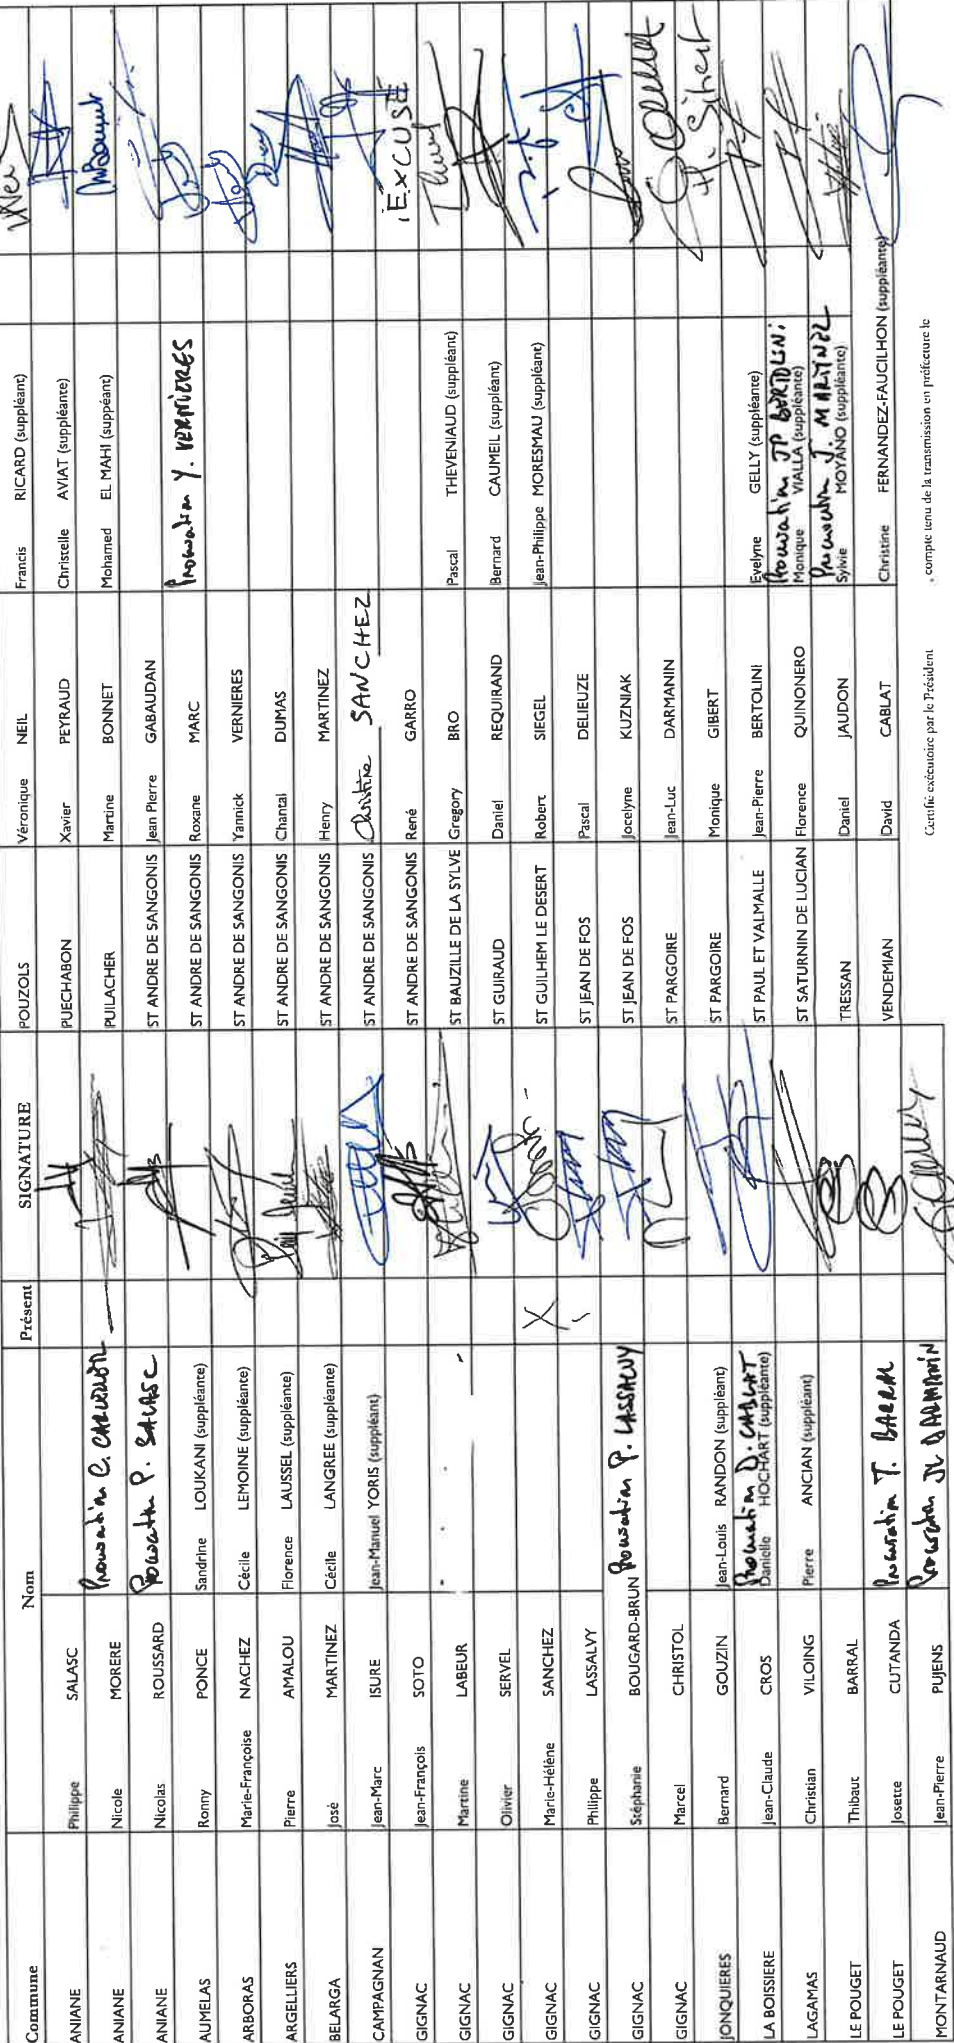 Commune Nom Présent SIGNATURE
ANIANE Philippe SALASC
ANIANE Nicole MORERE Procuration C. CARCELLER
ANIANE Nicolas ROUSSARD Procuration P. SALASC
AUMELAS Ronny PONCE Sandrine LOUKANI (suppléante)
ARBORAS Marie-Françoise NACHEZ Cécile LEMOINE (suppléante)
ARGELLIERS Pierre AMALOU Florence LAUSSEL (suppléante)
BELARGA José MARTINEZ Cécile LANGREE (suppléante)
CAMPAGNAN Jean-Marc ISURE Jean-Manuel YORIS (suppléant)
GIGNAC Jean-François SOTO
GIGNAC Martine LABEUR
GIGNAC Olivier SERVEL
GIGNAC Marie-Hélène SANCHEZ X
GIGNAC Philippe LASSALVY
GIGNAC Stéphanie BOUGARD-BRUN Procuration P. LASSALVY
GIGNAC Marcel CHRISTOL
JONQUIERES Bernard GOUZIN Jean-Louis RANDON (suppléant)
LA BOISSIERE Jean-Claude CROS Procuration D. CABLAT
Danielle HOCHART (suppléante)
LAGAMAS Christian VILOING Pierre ANCIAN (suppléant)
LE POUGET Thibaut BARRAL
LE POUGET Josette CUTANDA Procuration T. BARRAL
MONTARNAUD Jean-Pierre PUJENS Procuration JL DARMANIN
POUZOLS Véronique NEIL Francis RICARD (suppléant)
PUECHABON Xavier PEYRAUD Christelle AVIAT (suppléante)
PUILACHER Martine BONNET Mohamed EL MAHI (suppéant)
ST ANDRE DE SANGONIS Jean Pierre GABAUDAN
ST ANDRE DE SANGONIS Roxane MARC Procuration Y. VERNIERES
ST ANDRE DE SANGONIS Yannick VERNIERES
ST ANDRE DE SANGONIS Chantal DUMAS
ST ANDRE DE SANGONIS Henry MARTINEZ
ST ANDRE DE SANGONIS Christine SANCHEZ
ST ANDRE DE SANGONIS René GARRO EXCUSÉ
ST BAUZILLE DE LA SYLVE Gregory BRO Pascal THEVENIAUD (suppléant)
ST GUIRAUD Daniel REQUIRAND Bernard CAUMEIL (suppléant)
ST GUILHEM LE DESERT Robert SIEGEL Jean-Philippe MORESMAU (suppléant)
ST JEAN DE FOS Pascal DELIEUZE
ST JEAN DE FOS Jocelyne KUZNIAK
ST PARGOIRE Jean-Luc DARMANIN
ST PARGOIRE Monique GIBERT
ST PAUL ET VALMALLE Jean-Pierre BERTOLINI Evelyne GELLY (suppléante)
ST SATURNIN DE LUCIAN Florence QUINONERO Procuration JP BERTOLINI
Monique VIALLA (suppléante)
TRESSAN Daniel JAUDON Procuration J. MARTINEZ
Sylvie MOYANO (suppléante)
VENDEMIAN David CABLAT Christine FERNANDEZ-FAUCILHON (suppléante)
Certifié exécutoire par le Président , compte tenu de la transmission en préfecture le